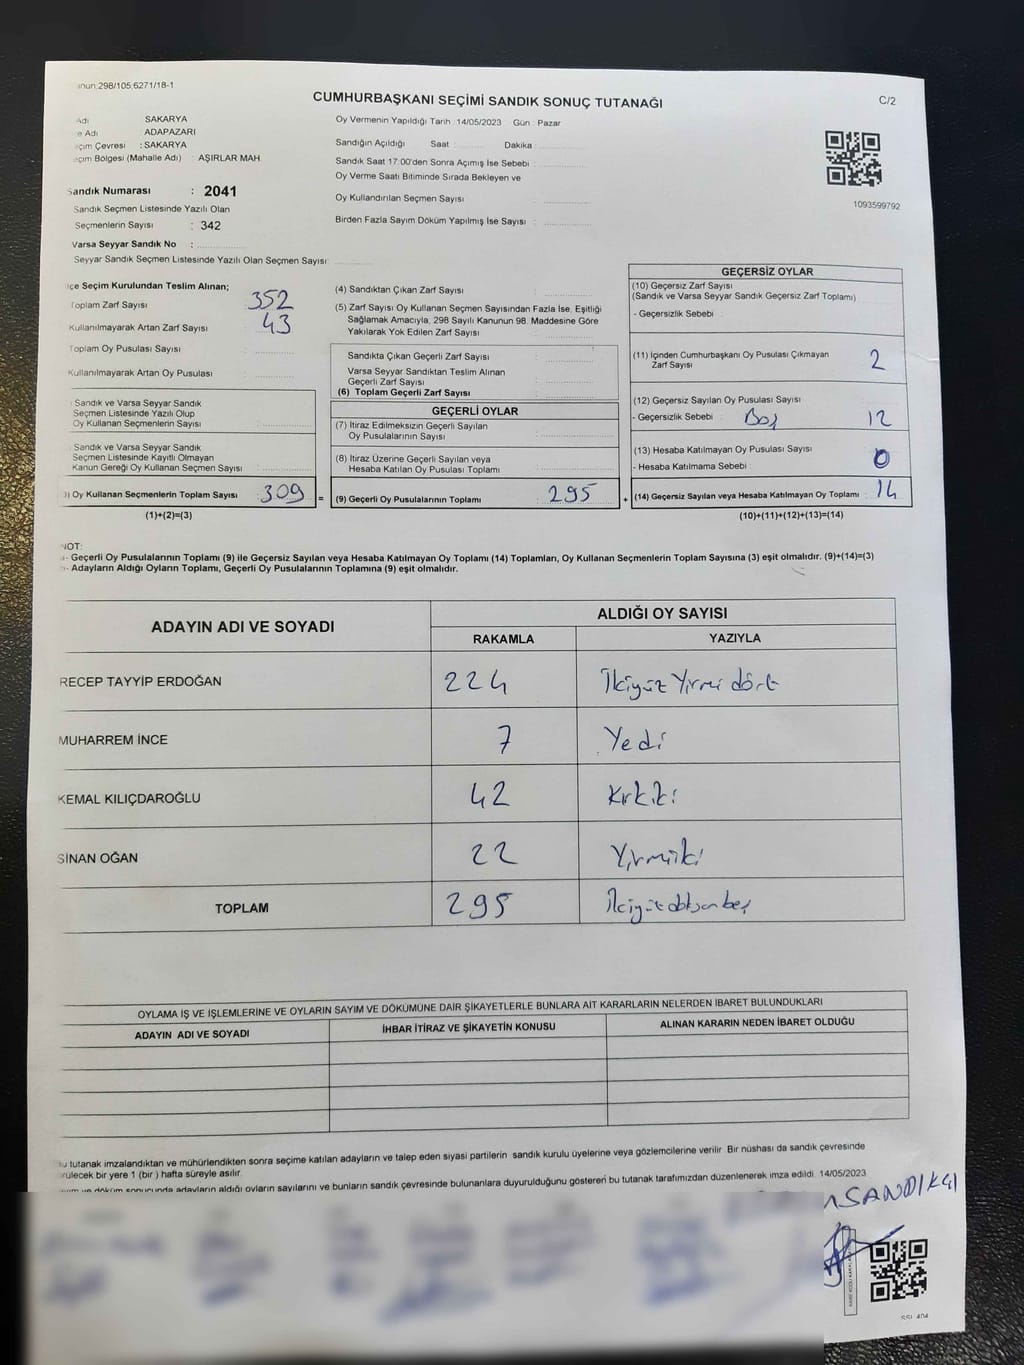 nun:298/105,6271/18-1
C/2
CUMHURBAŞKANI SEÇİMİ SANDIK SONUÇ TUTANAĞI
Adı SAKARYA
e Adı ADAPAZARI
çim Çevresi : SAKARYA
çim Bölgesi (Mahalle Adı) : AŞIRLAR MAH.
Sandık Numarası : 2041
Sandık Seçmen Listesinde Yazılı Olan
Seçmenlerin Sayısı : 342
Varsa Seyyar Sandık No :
Seyyar Sandık Seçmen Listesinde Yazılı Olan Seçmen Sayısı:
Oy Vermenin Yapıldığı Tarih :14/05/2023 Gün : Pazar
Sandığın Açıldığı Saat : Dakika :
Sandık Saat 17:00'den Sonra Açımış İse Sebebi :
Oy Verme Saati Bitiminde Sırada Bekleyen ve
Oy Kullandırılan Seçmen Sayısı :
Birden Fazla Sayım Döküm Yapılmış İse Sayısı :
1093599792
çe Seçim Kurulundan Teslim Alınan;
Toplam Zarf Sayısı : 352
Kullanılmayarak Artan Zarf Sayısı : 43
Toplam Oy Pusulası Sayısı :
Kullanılmayarak Artan Oy Pusulası :
Sandık ve Varsa Seyyar Sandık
Seçmen Listesinde Yazılı Olup
Oy Kullanan Seçmenlerin Sayısı :
Sandık ve Varsa Seyyar Sandık
Seçmen Listesinde Kayıtlı Olmayan
Kanun Gereği Oy Kullanan Seçmen Sayısı :
) Oy Kullanan Seçmenlerin Toplam Sayısı : 309 =
(1)+(2)=(3)
(4) Sandıktan Çıkan Zarf Sayısı :
(5) Zarf Sayısı Oy Kullanan Seçmen Sayısından Fazla İse, Eşitliği
Sağlamak Amacıyla, 298 Sayılı Kanunun 98. Maddesine Göre
Yakılarak Yok Edilen Zarf Sayısı :
Sandıkta Çıkan Geçerli Zarf Sayısı :
Varsa Seyyar Sandıktan Teslim Alınan
Geçerli Zarf Sayısı :
(6) Toplam Geçerli Zarf Sayısı :
GEÇERLİ OYLAR
(7) İtiraz Edilmeksizin Geçerli Sayılan
Oy Pusulalarının Sayısı :
(8) İtiraz Üzerine Geçerli Sayılan veya
Hesaba Katılan Oy Pusulası Toplamı :
(9) Geçerli Oy Pusulalarının Toplamı : 295 +
GEÇERSİZ OYLAR
(10) Geçersiz Zarf Sayısı
(Sandık ve Varsa Seyyar Sandık Geçersiz Zarf Toplamı)
- Geçersizlik Sebebi :
(11) İçinden Cumhurbaşkanı Oy Pusulası Çıkmayan
Zarf Sayısı 2
(12) Geçersiz Sayılan Oy Pusulası Sayısı
- Geçersizlik Sebebi : Boş 12
(13) Hesaba Katılmayan Oy Pusulası Sayısı
- Hesaba Katılmama Sebebi : 0
(14) Geçersiz Sayılan veya Hesaba Katılmayan Oy Toplamı : 14
(10)+(11)+(12)+(13)=(14)
NOT:
- Geçerli Oy Pusulalarının Toplamı (9) ile Geçersiz Sayılan veya Hesaba Katılmayan Oy Toplamı (14) Toplamları, Oy Kullanan Seçmenlerin Toplam Sayısına (3) eşit olmalıdır. (9)+(14)=(3)
- Adayların Aldığı Oyların Toplamı, Geçerli Oy Pusulalarının Toplamına (9) eşit olmalıdır.
ADAYIN ADI VE SOYADI ALDIĞI OY SAYISI
RAKAMLA YAZIYLA
RECEP TAYYİP ERDOĞAN 224 İkiyüz Yirmi dört
MUHARREM İNCE 7 Yedi
KEMAL KILIÇDAROĞLU 42 Kırkiki
SİNAN OĞAN 22 Yirmiiki
TOPLAM 295 İkiyüzdoksanbeş
OYLAMA İŞ VE İŞLEMLERİNE VE OYLARIN SAYIM VE DÖKÜMÜNE DAİR ŞİKAYETLERLE BUNLARA AİT KARARLARIN NELERDEN İBARET BULUNDUKLARI
ADAYIN ADI VE SOYADI İHBAR İTİRAZ VE ŞİKAYETİN KONUSU ALINAN KARARIN NEDEN İBARET OLDUĞU
u tutanak imzalandıktan ve mühürlendikten sonra seçime katılan adayların ve talep eden siyasi partilerin sandık kurulu üyelerine veya gözlemcilerine verilir. Bir nüshası da sandık çevresinde
rülecek bir yere 1 (bir) hafta süreyle asılır.
yım ve döküm sonucunda adayların aldığı oyların sayılarını ve bunların sandık çevresinde bulunanlara duyurulduğunu gösteren bu tutanak tarafımızdan düzenlenerek imza edildi. 14/05/2023
SANDIKÇI